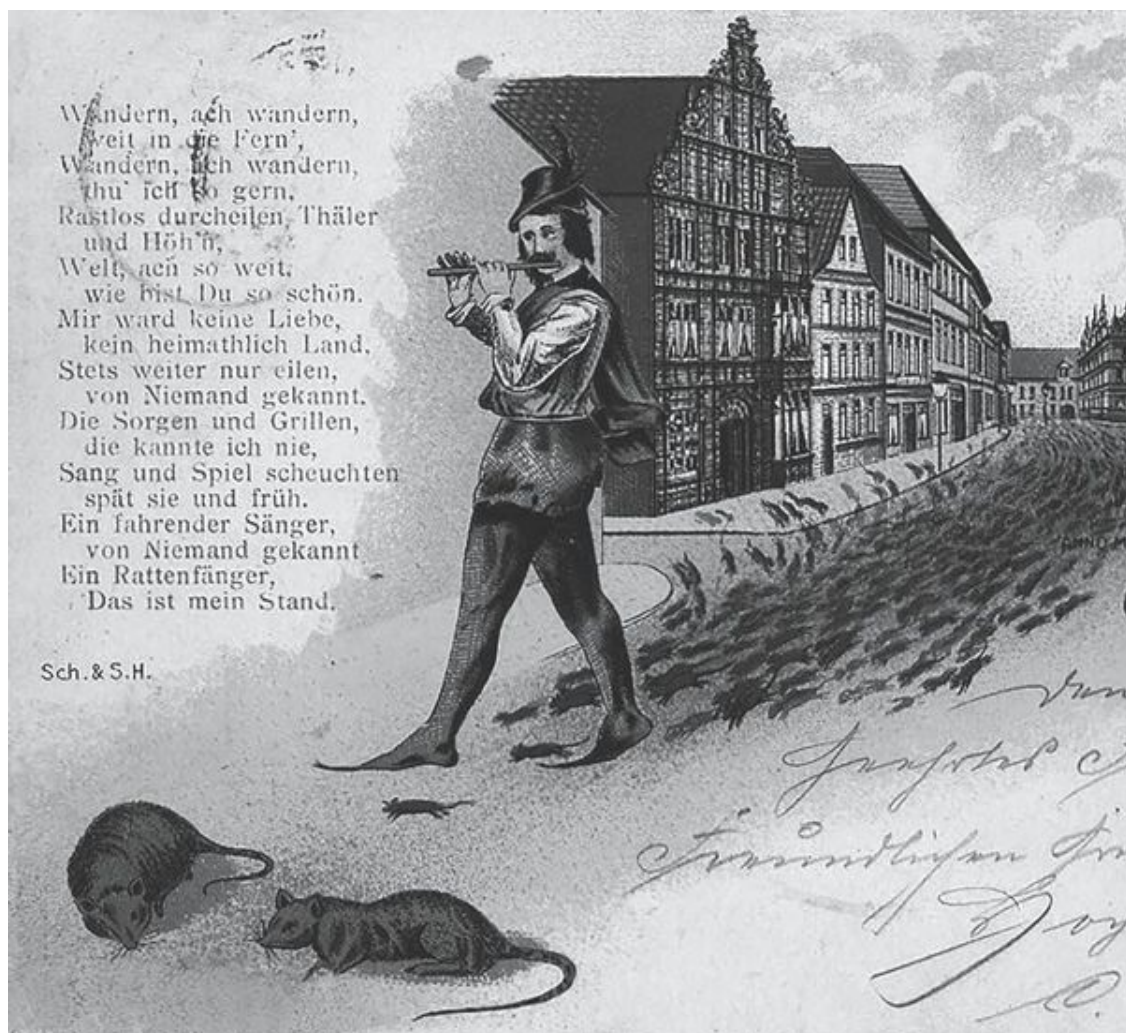 Wandern, ach wandern,
weit in die Fern',
Wandern, ach wandern,
thu' ich so gern.
Rastlos durcheilen Thäler
und Höh'n,
Welt, ach so weit,
wie bist Du so schön.
Mir ward keine Liebe,
kein heimathlich Land.
Stets weiter nur eilen,
von Niemand gekannt.
Die Sorgen und Grillen,
die kannte ich nie,
Sang und Spiel scheuchten
spät sie und früh.
Ein fahrender Sänger,
von Niemand gekannt
Ein Rattenfänger,
Das ist mein Stand.
Sch. & S.H.
ANNO
den
Geehrtes
Freundlichen